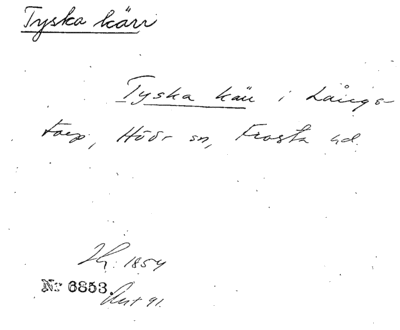 Tyska kärr
Tyska kärr i Långs-
torp, Höör sn, Frosta hd.
1854
Nr 6853. Avt 91.